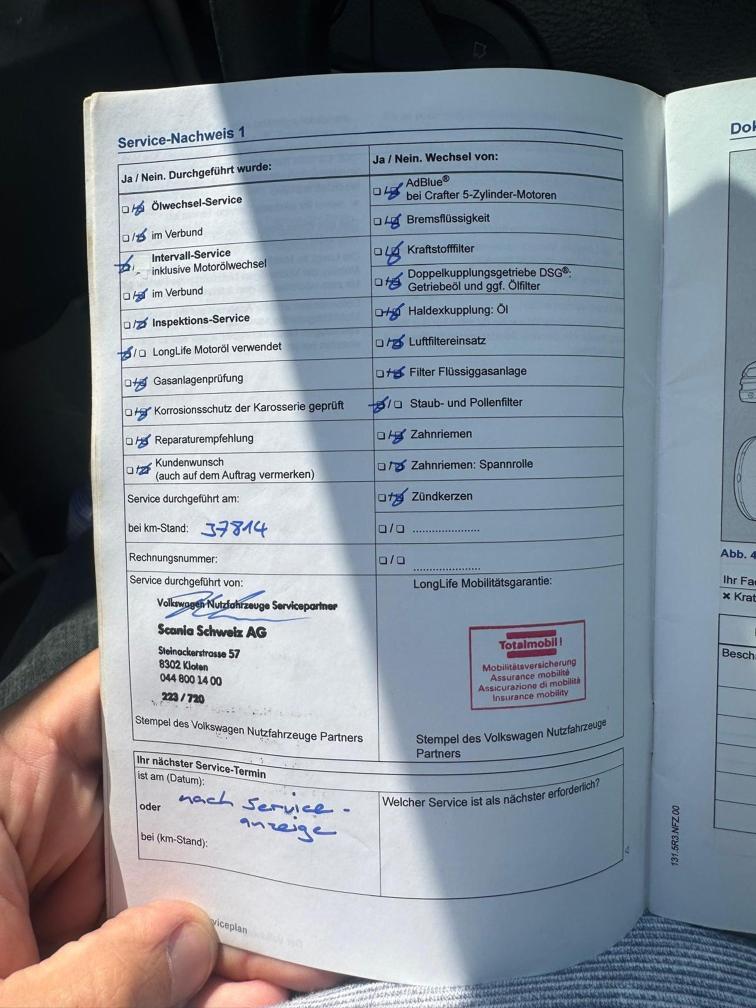 Service-Nachweis 1
Ja / Nein. Durchgeführt wurde:
☐/☒ Ölwechsel-Service
☐/☒ im Verbund
☒/☐ Intervall-Service
inklusive Motorölwechsel
☐/☒ im Verbund
☐/☒ Inspektions-Service
☒/☐ LongLife Motoröl verwendet
☐/☒ Gasanlagenprüfung
☐/☒ Korrosionsschutz der Karosserie geprüft
☐/☒ Reparaturempfehlung
☐/☒ Kundenwunsch
(auch auf dem Auftrag vermerken)
Service durchgeführt am:
bei km-Stand: 37814
Rechnungsnummer:
Service durchgeführt von:
Volkswagen Nutzfahrzeuge Servicepartner
Scania Schweiz AG
Steinackerstrasse 57
8302 Kloten
044 800 14 00
223 / 720
Stempel des Volkswagen Nutzfahrzeuge Partners
Ja / Nein. Wechsel von:
☐/☒ AdBlue®
bei Crafter 5-Zylinder-Motoren
☐/☒ Bremsflüssigkeit
☐/☒ Kraftstofffilter
☐/☒ Doppelkupplungsgetriebe DSG®:
Getriebeöl und ggf. Ölfilter
☐/☒ Haldexkupplung: Öl
☐/☒ Luftfiltereinsatz
☐/☒ Filter Flüssiggasanlage
☒/☐ Staub- und Pollenfilter
☐/☒ Zahnriemen
☐/☒ Zahnriemen: Spannrolle
☐/☒ Zündkerzen
☐/☐ .....................
☐/☐ .....................
LongLife Mobilitätsgarantie:
Totalmobil!
Mobilitätsversicherung
Assurance mobilité
Assicurazione di mobilità
Insurance mobility
Stempel des Volkswagen Nutzfahrzeuge
Partners
Ihr nächster Service-Termin
ist am (Datum):
oder nach Service-
anzeige
bei (km-Stand):
Welcher Service ist als nächster erforderlich?
viceplan
Dok
Abb. 4
Ihr Fa
× Krat
Besch
131.5R3.NFZ.00